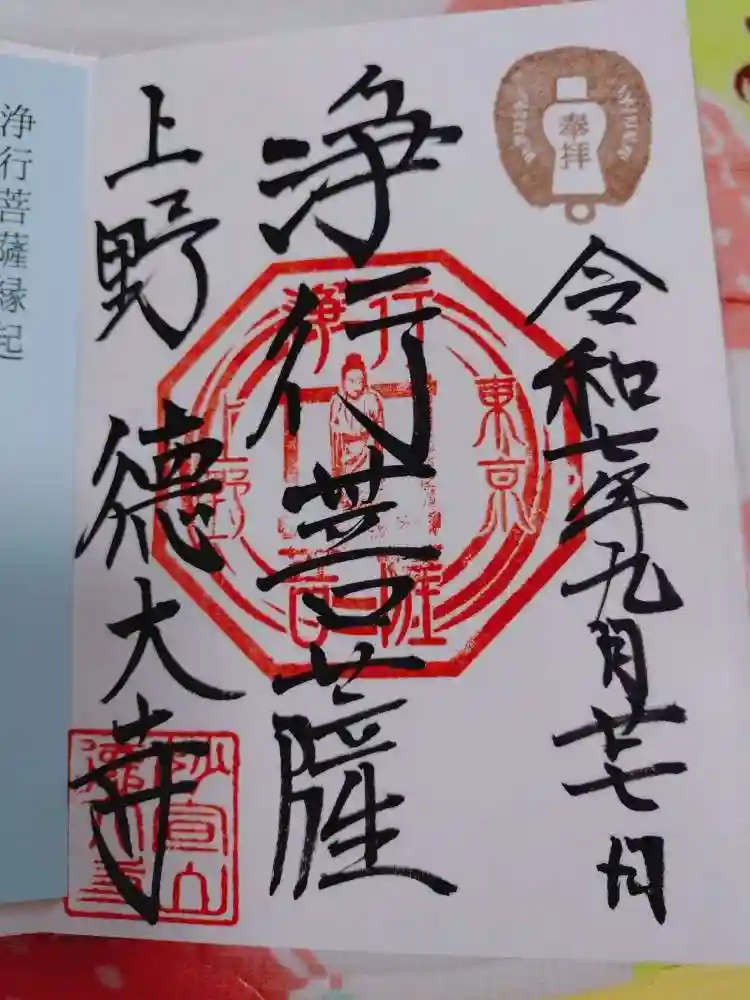 奉拝
令和七年九月廿七日
浄行菩薩
上野 徳大寺
浄行
東京
上野
菩薩
妙宣山
徳大寺
浄行菩薩縁起